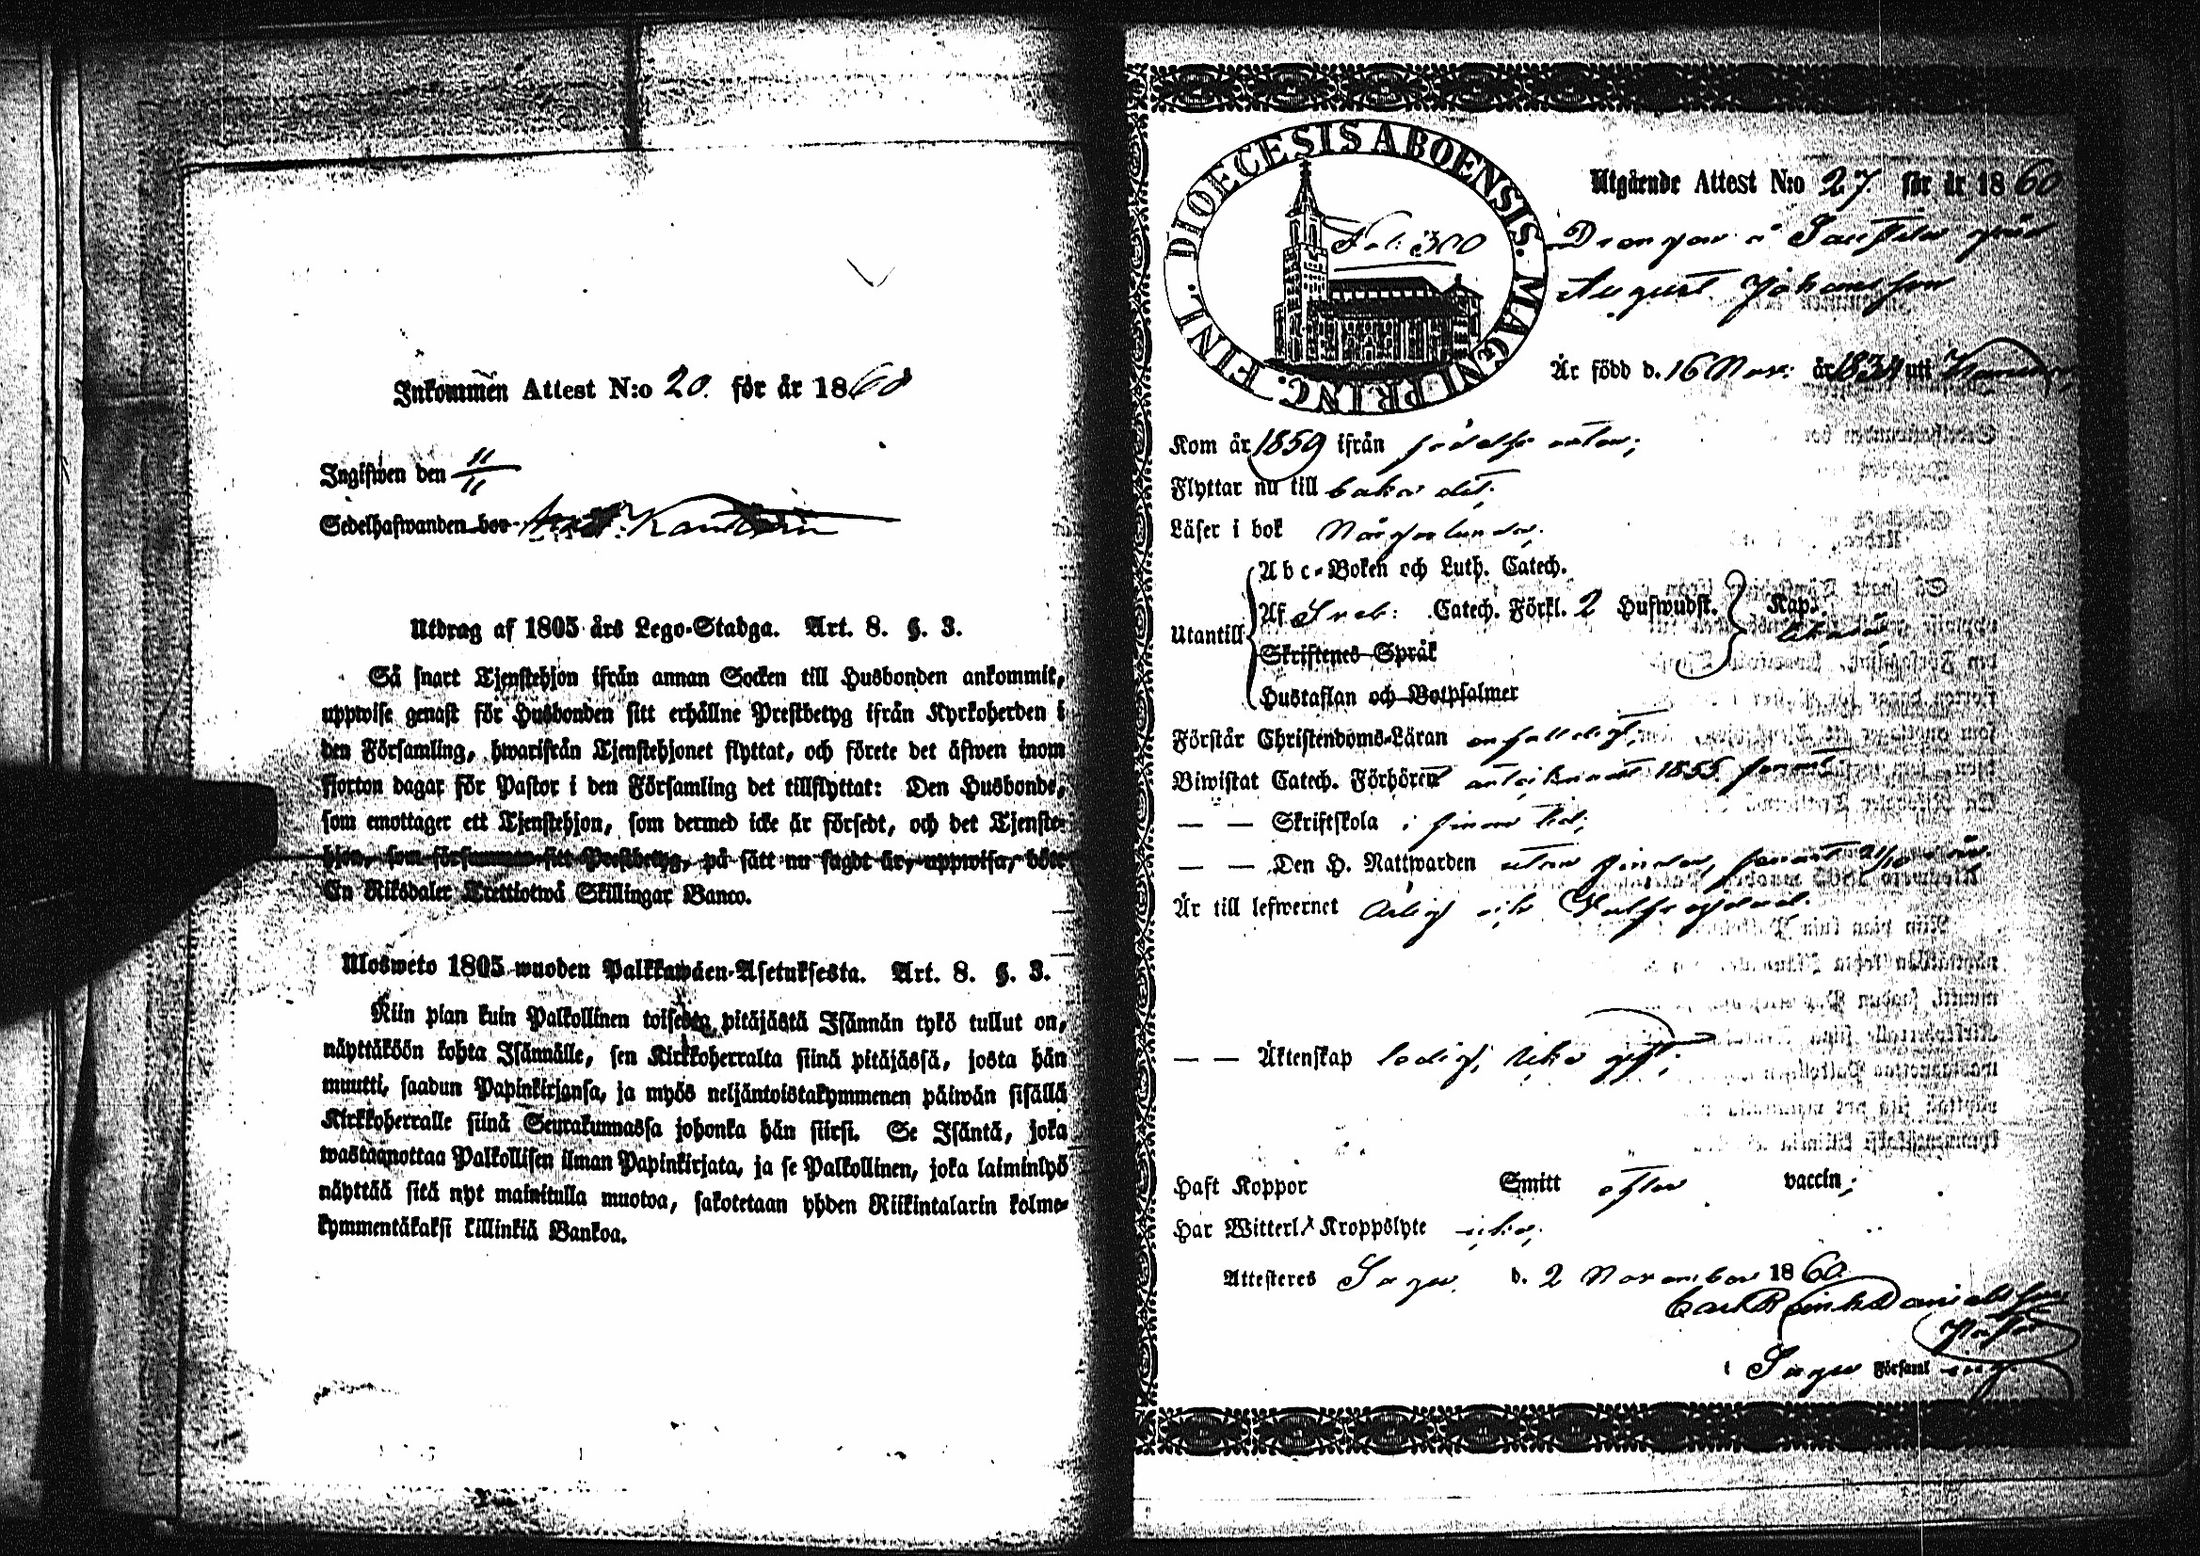 Inkommen Attest N:o 20. för år 1860
Ingifwen den 11/11
Sedelhafwanden bor
Utdrag af 1805 års Lego-Stadga. Art. 8. §. 3.
Så snart Tjenstehjon ifrån annan Socken till Husbonden ankommit,
uppwise genast för Husbonden sitt erhållne Prestbetyg ifrån Kyrkoherden i
den Församling, hwarifrån Tjenstehjonet flyttat, och förete det äfwen inom
fjorton dagar för Pastor i den Församling det tillflyttat: Den Husbonde,
som emottager ett Tjenstehjon, som dermed icke är försedt, och det Tjenste-
hjon, som försummar sitt Prestbetyg, på sätt nu sagdt är, uppwisa, böte
En Riksdaler Trettiotwå Skillingar Banco.
Ulosweto 1805 wuoden Palkkawäen-Asetuksesta. Art. 8. §. 3.
Niin pian kuin Palkollinen toisesta pitäjästä Isännän tykö tullut on,
näyttäköön kohta Isännälle, sen Kirkkoherralta siinä pitäjässä, josta hän
muutti, saadun Papinkirjansa, ja myös neljäntoistakymmenen päiwän sisällä
Kirkkoherralle siinä Seurakunnassa johonka hän siirsi. Se Isäntä, joka
wastaanottaa Palkollisen ilman Papinkirjata, ja se Palkollinen, joka laiminlyö
näyttää sitä nyt mainitulla muotoa, sakotetaan yhden Riikintalarin kolme-
kymmentäkaksi killinkiä Bankoa.
DIOECESIS ABOENSIS. MAGNI PRINC. FINL.
Fol: 300
Utgående Attest N:o 27 för år 1860
Drengen
August Johansson
Är född d. 16 Nov: år 1834 uti
Kom år 1859 ifrån födelse orten;
Flyttar nu till baka dit.
Läser i bok någorlunda;
Utantill
Abc-Boken och Luth. Catech.
Af Sveb: Catech. Förkl. 2 Hufwudst. Kap.
Skriftenes Språk
Hustaflan och Botpsalmer
Förstår Christendoms-Läran enfaldigt,
Biwistat Catech. Förhören antecknadt 1855 senast
— — Skriftskola i sinom tid;
— — Den H. Nattwarden
Är till lefwernet ärlig och
— — Äktenskap ledig, icke gift;
Haft Koppor Smitt efter vaccin;
Har Witterl. Kroppslyte icke;
Attesteres Sagu d. 2 November 1860
i Sagu Församling